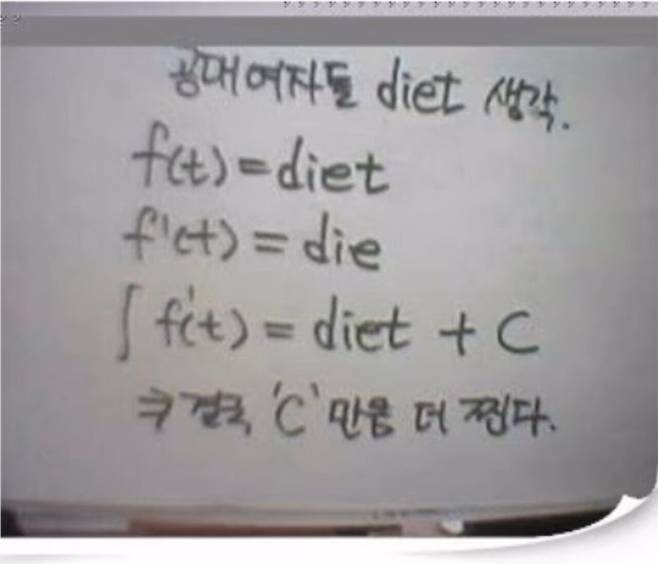 공대여자들 diet 생각.
f(t)=diet
f'(t)=die
∫f'(t)=diet + C
=> 결국, 'C' 만음 더 찐다.